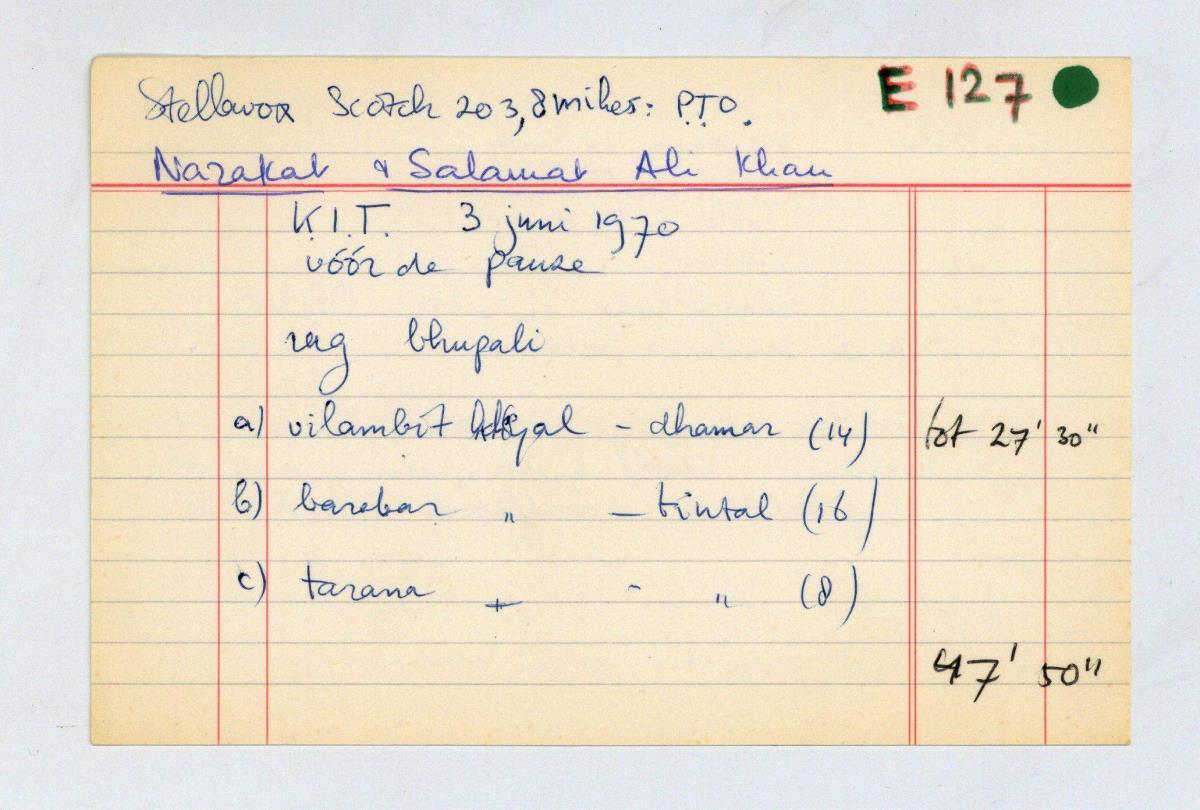 Stellavox Scotch 203, 8 mikes: P.T.O. E 127
Nazakat & Salamat Ali Khan
K.I.T. 3 juni 1970
vóór de pauze
rag bhupali
a) vilambit khyal - dhamar (14) tot 27' 30"
b) barabar " - tintal (16)
c) tarana - " (8)
47' 50"